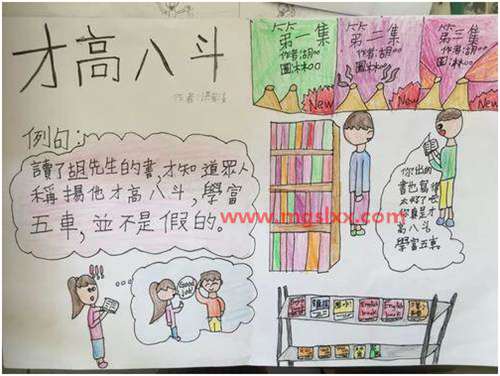 才高八斗
第一集
作者:胡∞
圖:林∞
New
第二集
作者:胡∞
圖:林∞
New
第三集
作者:胡∞
圖:林∞
New
例句:
讀了胡先生的書,才知道眾人
稱揚他才高八斗,學富
五車,並不是假的。
你出的
書也寫得
太好了吧
你真是才
高八斗
學富五車
www.mgslxx.com
!!!
Good
Job!
English
book
English
book